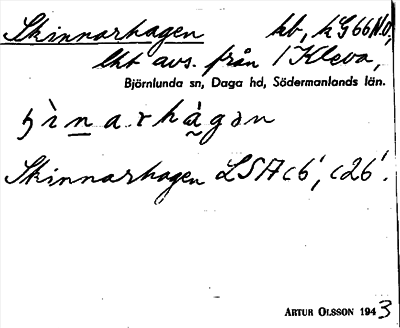 Skinnarhagen hb, k G 66 N.O,
lht avs. från 1 Kleva,
Björnlunda sn, Daga hd, Södermanlands län.
Skinnarhagen LSA c6', c26'.
ARTUR OLSSON 1943